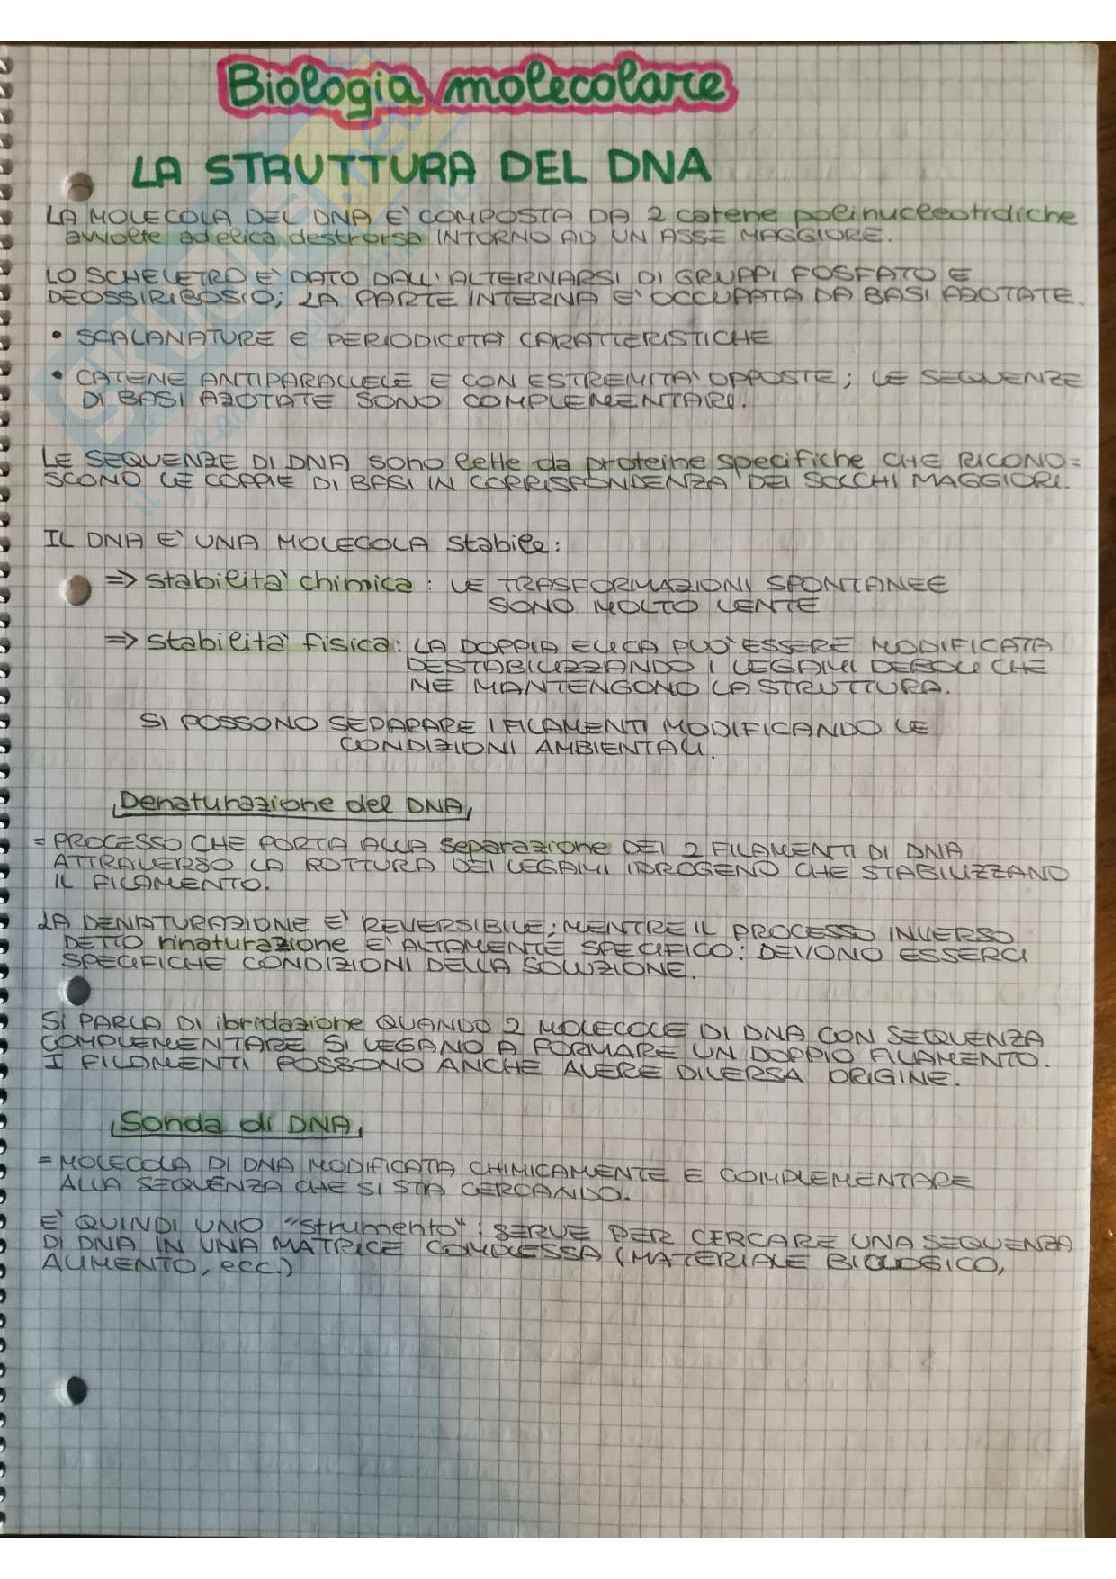 Biologia molecolare
LA STRUTTURA DEL DNA
LA MOLECOLA DEL DNA E' COMPOSTA DA 2 catene polinucleotidiche
avvolte ad elica destrorsa INTORNO AD UN ASSE MAGGIORE.
LO SCHELETRO E' DATO DALL'ALTERNARSI DI GRUPPI FOSFATO E
DEOSSIRIBOSIO; LA PARTE INTERNA E' OCCUPATA DA BASI AZOTATE.
• SCALANATURE E PERIODICITA' CARATTERISTICHE
• CATENE ANTIPARALLELE E CON ESTREMITA' OPPOSTE; LE SEQUENZE
DI BASI AZOTATE SONO COMPLEMENTARI.
LE SEQUENZE DI DNA sono lette da proteine specifiche CHE RICONO=
SCONO LE COPPIE DI BASI IN CORRISPONDENZA DEI SOLCHI MAGGIORI.
IL DNA E' UNA MOLECOLA stabile:
=> stabilita' chimica: LE TRASFORMAZIONI SPONTANEE
SONO MOLTO LENTE
=> stabilita' fisica: LA DOPPIA ELICA PUO' ESSERE MODIFICATA
DESTABILIZZANDO I LEGAMI DEBOLI CHE
NE MANTENGONO LA STRUTTURA.
SI POSSONO SEPARARE I FILAMENTI MODIFICANDO LE
CONDIZIONI AMBIENTALI.
Denaturazione del DNA
= PROCESSO CHE PORTA ALLA separazione DEI 2 FILAMENTI DI DNA
ATTRAVERSO LA ROTTURA DEI LEGAMI IDROGENO CHE STABILIZZANO
IL FILAMENTO.
LA DENATURAZIONE E' REVERSIBILE; MENTRE IL PROCESSO INVERSO
DETTO rinaturazione E' ALTAMENTE SPECIFICO: DEVONO ESSERCI
SPECIFICHE CONDIZIONI DELLA SOLUZIONE.
SI PARLA DI ibridazione QUANDO 2 MOLECOLE DI DNA CON SEQUENZA
COMPLEMENTARE SI LEGANO A FORMARE UN DOPPIO FILAMENTO.
I FILAMENTI POSSONO ANCHE AVERE DIVERSA ORIGINE.
Sonda di DNA
= MOLECOLA DI DNA MODIFICATA CHIMICAMENTE E COMPLEMENTARE
ALLA SEQUENZA CHE SI STA CERCANDO.
E' QUINDI UNO "strumento": SERVE PER CERCARE UNA SEQUENZA
DI DNA IN UNA MATRICE COMPLESSA (MATERIALE BIOLOGICO,
ALIMENTO, ecc.)